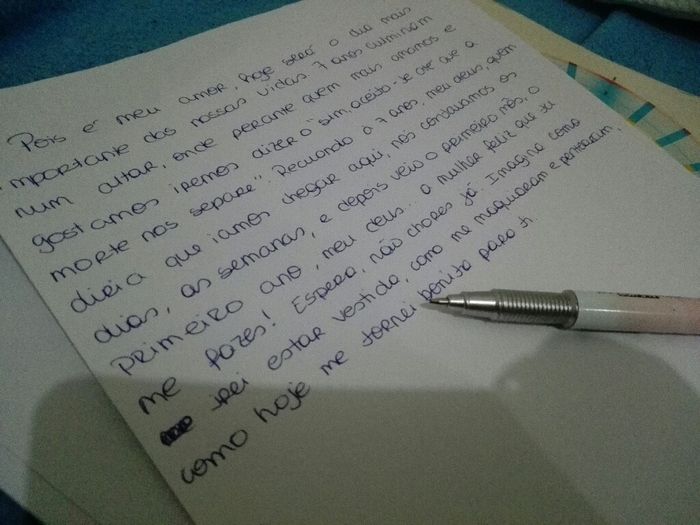 Pois é meu amor, hoje será o dia mais
importante das nossas vidas. 7 anos culminam
num altar, onde perante quem mais amamos e
gostamos iremos dizer o "sim, aceito-te até que a
morte nos separe". Recuando à 7 anos, meu deus, quem
diria que iamos chegar aqui, nós contavamos os
dias, as semanas, e depois veio o primeiro mês, o
primeiro ano, meu deus... a mulher feliz que tu
me fazes! Espera, não chores já. Imagina como
irei estar vestida, como me maquiaram e pentearam,
como hoje me tornei bonita para ti.